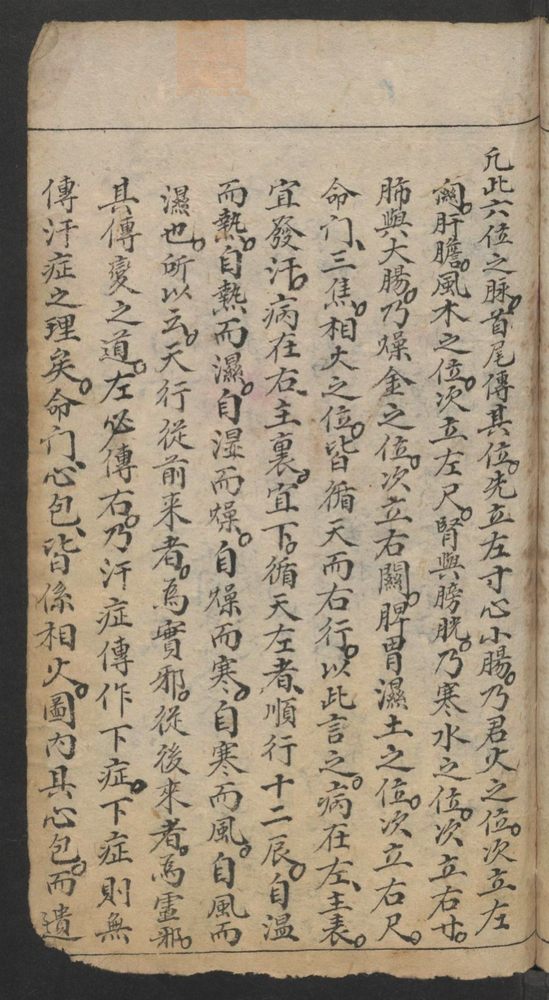 凢此六位之脉。首尾傳其位。先立左寸心小腸。乃君火之位。次立左
関。肝膽。風木之位。次立左尺。腎與膀胱。乃寒水之位。次立右寸。
肺與大腸。乃燥金之位。次立右關。脾胃濕土之位。次立右尺。
命门、三焦。相火之位。皆循天而右行。以此言之。病在左、主表。
宜發汗。病在右、主裏。宜下。循天左者、順行十二辰。自温
而熱。自熱而濕。自湿而燥。自燥而寒。自寒而風。自風而
濕也。所以云。天行從前来者。為實邪。從後來者。為虚邪。
具傳變之道。左必傳右。乃汗症傳作下症。下症則無
傳汗症之理矣。命门、心包、皆係相火。圖内具心包。而遺